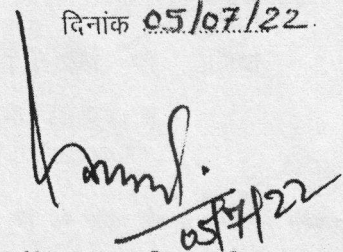 दिनांक 05/07/22.
05/7/22